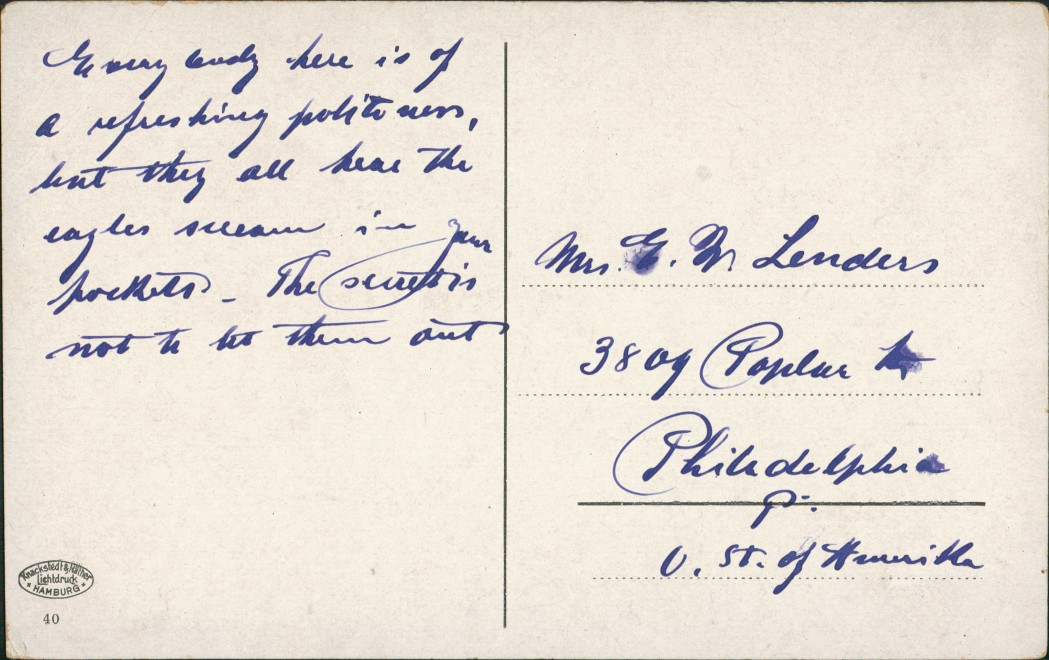 Every body here is of
a refreshing politeness,
but they all hear the
eagles scream in your
pockets. _ The secret is
not to let them out
Mrs. E. W. Lenders
3809 Poplar St
Philadelphia
P.
U. St. of Amerika
Knackstedt & Näther
Lichtdruck
HAMBURG
40